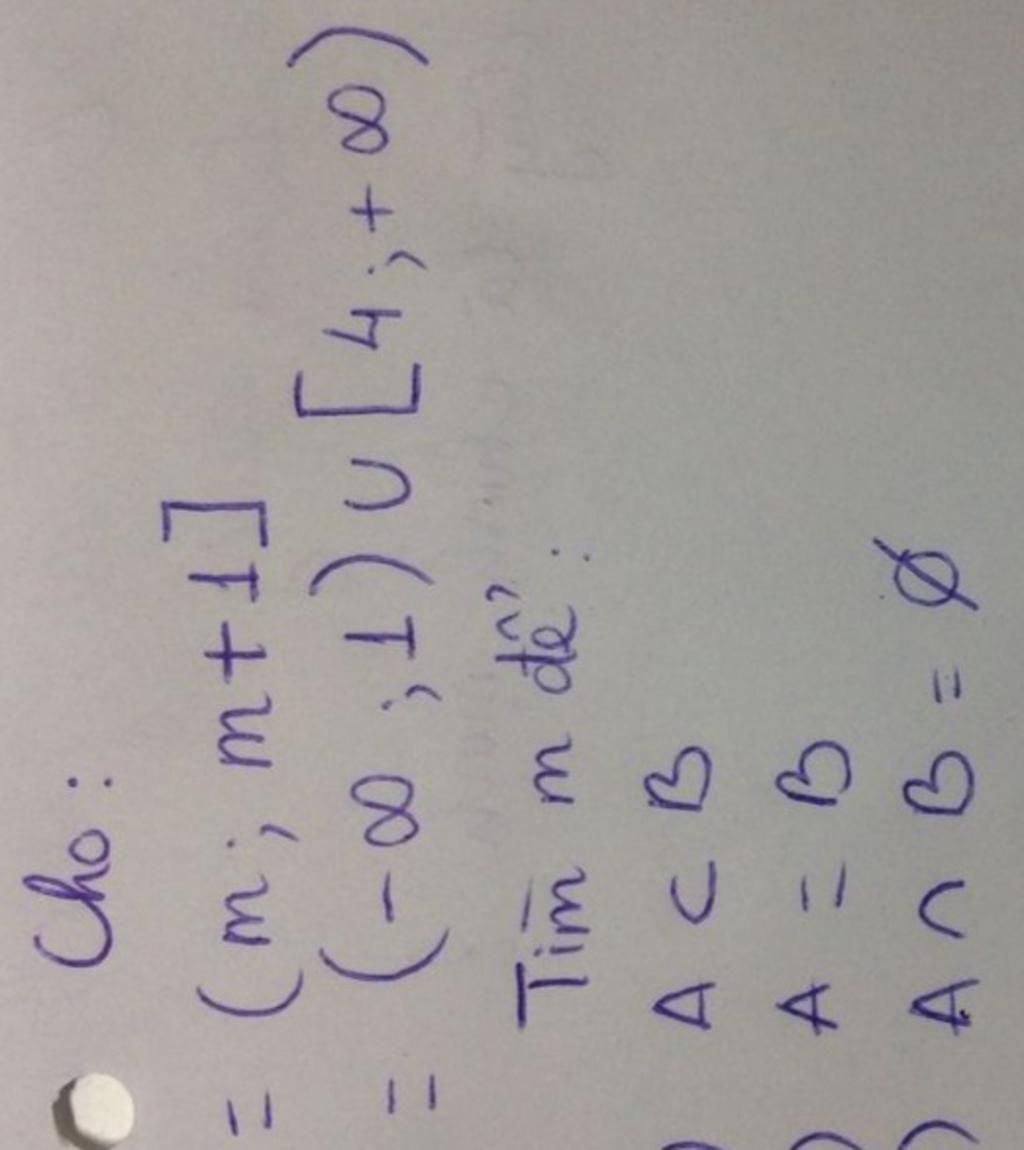 Cho:
= (m; m+1]
= (-∞; 1) ∪ [4; +∞)
Tìm m để:
) A ⊂ B
) A = B
) A ∩ B = Ø